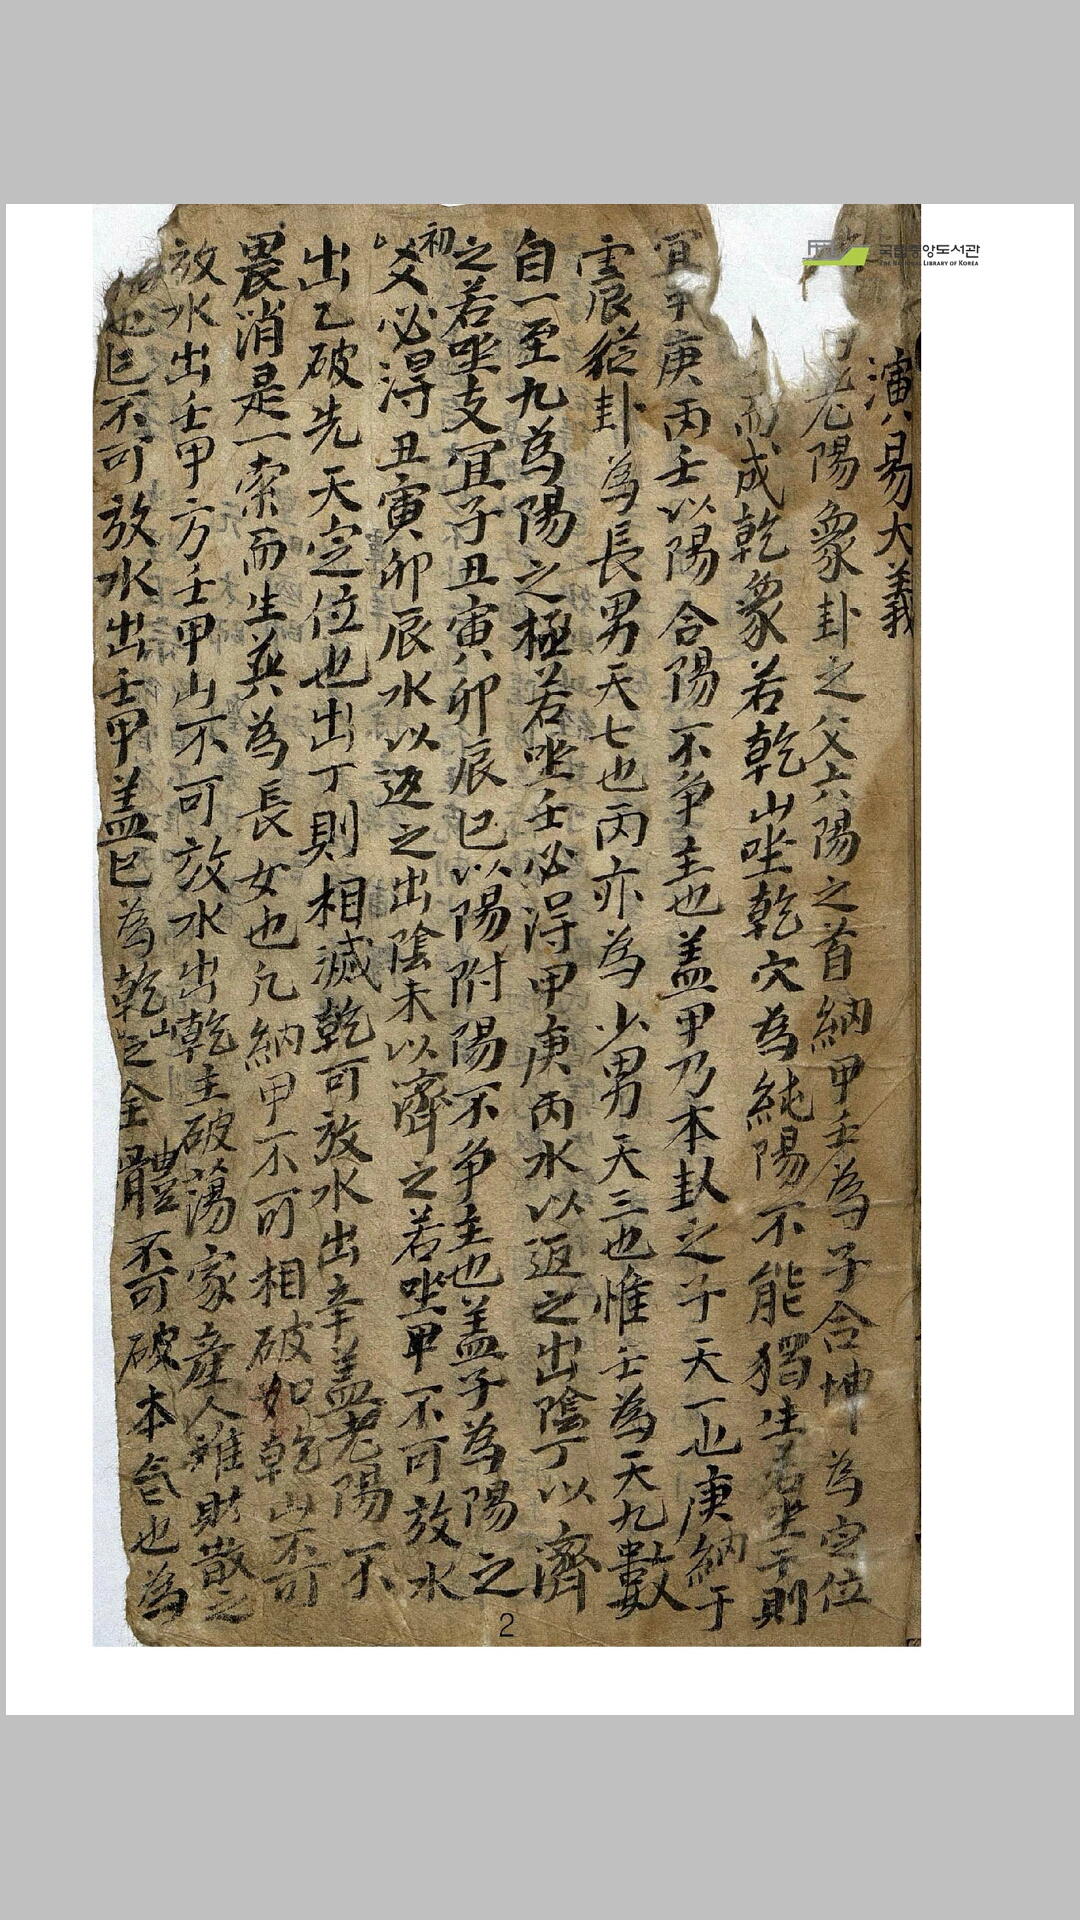 演易大義
老陽象卦之父六陽之首納甲壬為子合坤為定位
而成乾象若乾山坐乾穴為純陽不能獨生若坐子則
宜子庚丙壬以陽合陽不争主也盖甲乃本卦之子天一也庚納于
震辰從卦為長男天七也丙亦為少男天三也惟壬為天九數
自一至九為陽之極若坐壬必淂甲庚丙水以返之出陰丁以濟
之若坐支冝子丑寅卯辰巳以陽附陽不争主也盖子為陽之
初爻必淂丑寅卯辰水以返之出陰未以濟之若坐甲不可放水
出乙破先天定位也出丁則相滅乾可放水出辛盖老陽不
畏消是一索而生巽為長女也凡納甲不可相破如乾山不可
放水出壬甲方壬甲山不可放水出乾主破蕩家產人離財散之
也巳不可放水出壬甲盖巳為乾山之全體不可破本合也為
2
국립중앙도서관
THE NATIONAL LIBRARY OF KOREA